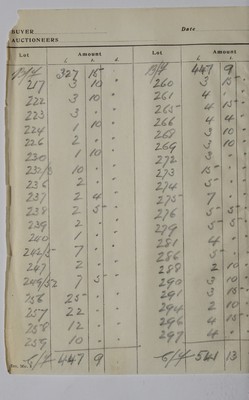 BUYER
Date
AUCTIONEERS
Lot Amount
£ s. d.
B/F 327 15 "
217 3 10 "
222 3 10 "
223 3 " "
224 1 10 "
226 2 " "
230 1 10 "
10 " "
236 2 " "
237 2 4 "
238 2 5 "
239 2 " "
240 1 " "
242/5 7 " "
247 2 " "
249/52 7 5 "
256 25 " "
257 22 " "
258 12 " "
259 10 " "
C/F 447 9 "
Lot Amount
£ s. d.
B/F 447 9 "
260 3 15 "
261 4 " "
265 4 15 "
266 4 4 "
268 3 10 "
269 3 10 "
272 3 " "
273 15 " "
274 5 " "
275 7 " "
276 5 5 "
279 5 5 "
281 4 " "
286 5 " "
288 2 10 "
290 3 10 "
291 3 15 "
294 2 10 "
296 4 15 "
297 4 " "
C/F 541 13